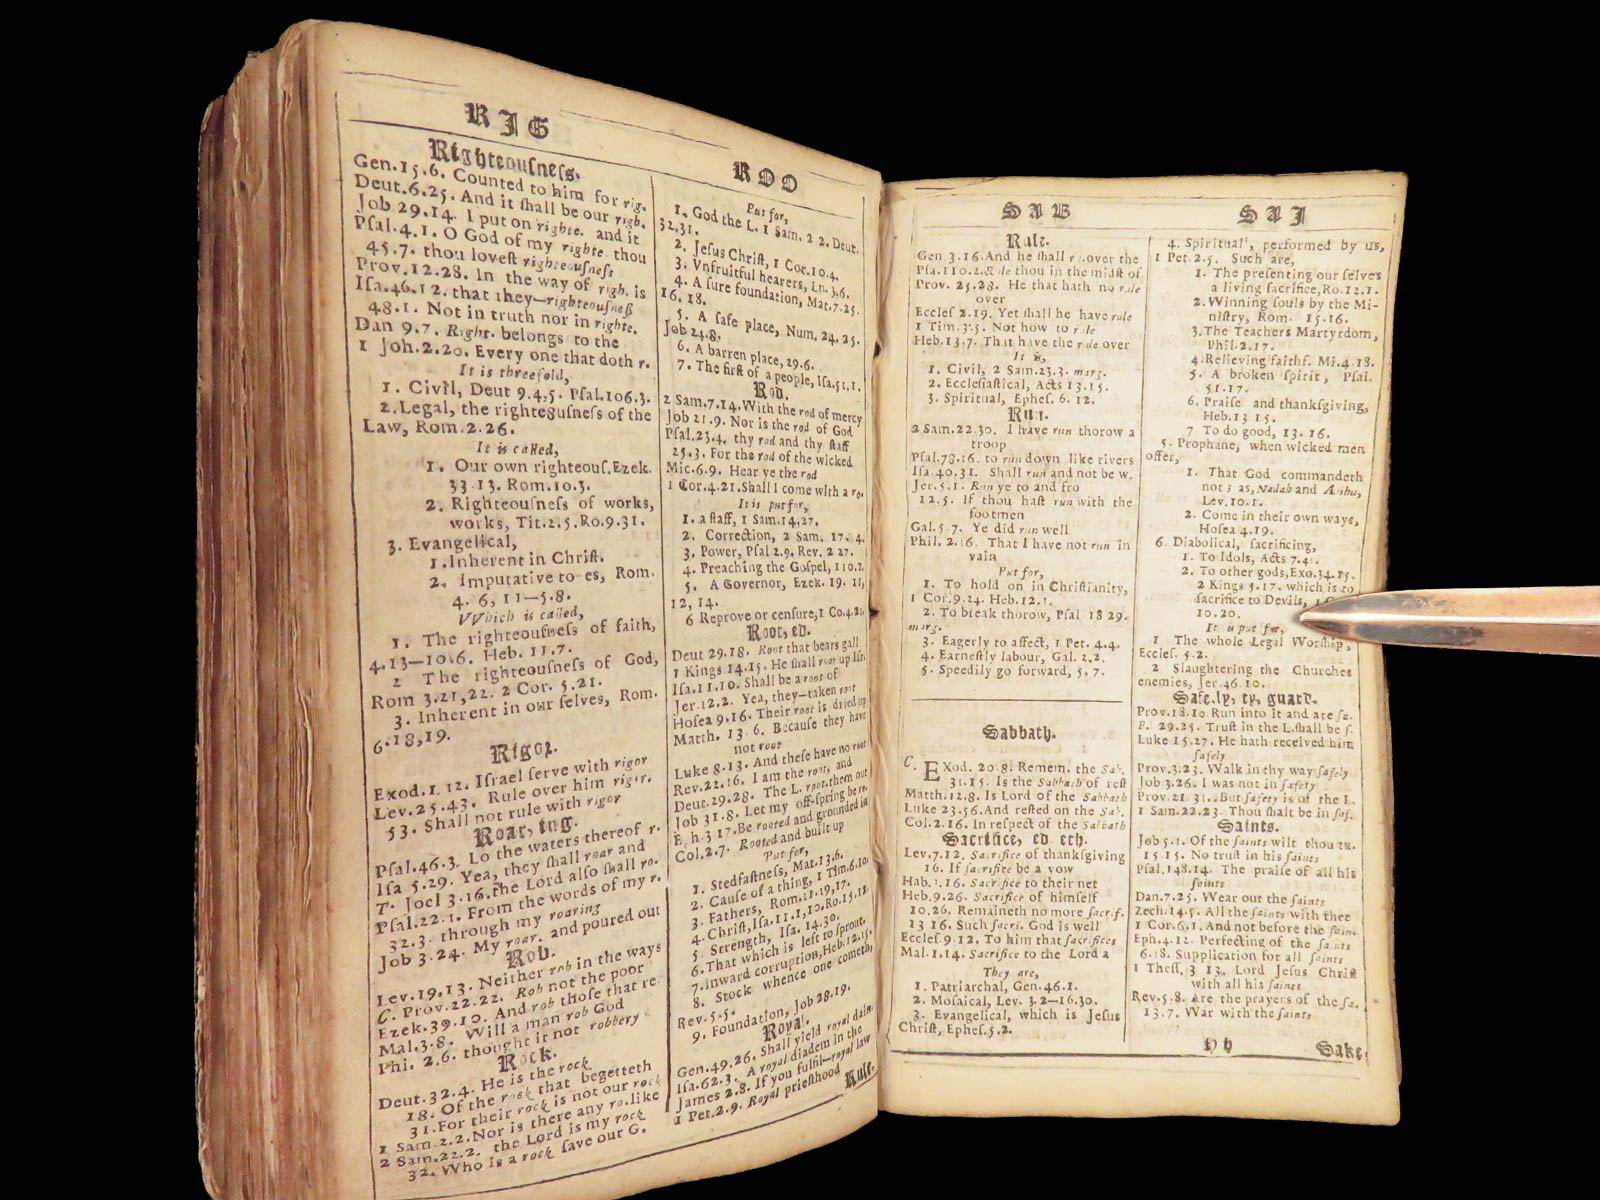 RIG
Righteouſneſs.
Gen.15.6. Counted to him for rig.
Deut.6.25. And it ſhall be our righ.
Job 29.14. I put on righte. and it
Pſal.4.1. O God of my righte. thou
45.7. thou loveſt righteouſneſs
Prov.12.28. In the way of righ. is
Iſa.46.12. that they—righteouſneß
48.1. Not in truth nor in righte.
Dan 9.7. Right. belongs to the
1 Joh.2.20. Every one that doth r.
It is threefold,
1. Civil, Deut 9.4,5. Pſal.106.3.
2. Legal, the righteouſneſs of the
Law, Rom.2.26.
It is called,
1. Our own righteouſ.Ezek.
33 13. Rom.10.3.
2. Righteouſneſs of works,
works, Tit.2.5.Ro.9.31.
3. Evangelical,
1.Inherent in Chriſt.
2. Imputative to es, Rom.
4. 6, 11—5.8.
VVhich is called,
1. The righteouſneſs of faith,
4.13—10.6. Heb. 11.7.
2 The righteouſneſs of God,
Rom 3.21,22. 2 Cor. 5.21.
3. Inherent in our ſelves, Rom.
6.18,19.
Rigor.
Exod.1.12. Iſrael ſerve with rigor
Lev.25.43. Rule over him rigor.
53. Shall not rule with rigor
Roar, ing.
Pſal.46.3. Lo the waters thereof r.
Iſa 5.29. Yea, they ſhall roar and
T. Joel 3.16.the Lord alſo ſhall ro.
Pſal.22.1. From the words of my r.
32.3. through my roaring
Job 3.24. My roar. and poured out
Rob.
Lev.19.13. Neither rob in the ways
C. Prov.22.22. Rob not the poor
Ezek.39.10. And rob thoſe that re
Mal.3.8. Will a man rob God
Phi. 2.6. thought it not robbery
Rock.
Deut.32.4. He is the rock
18. Of the rock that begetteth
31.For their rock is not our rock
1 Sam.2.2.Nor is there any ro.like
2 Sam.22.2. the Lord is my rock
32. Who is a rock ſave our G.
ROO
Put for,
1. God the L. 1 Sam. 2 2. Deut.
32.31.
2. Jeſus Chriſt, 1 Cor.10.4.
3. Vnfruitful hearers, Lu.3.6.
4. A ſure foundation, Mat.7.25.
16.18.
5. A ſafe place, Num. 24.25.
Job 24.8.
6. A barren place,29.6.
7. The firſt of a people, Iſa.51.1.
Rod.
2 Sam.7.14.With the rod of mercy
Job 21.9. Nor is the rod of God
Pſal.23.4. thy rod and thy ſtaff
25.3. For the rod of the wicked
Mic.6.9. Hear ye the rod
1 Cor.4.21.Shall I come with a ro.
It is put for,
1. a ſtaff, 1 Sam.14.27.
2. Correction, 2 Sam. 17.4.
3. Power, Pſal 2.9. Rev. 2 27.
4. Preaching the Goſpel, 110.2.
5. A Governor, Ezek. 19. 11,
12, 14.
6 Reprove or cenſure,1 Co.4.21.
Root, ed.
Deut 29.18. Root that bears gall
1 Kings 14.15. He ſhall root up Iſr.
Iſa.11.10. Shall be a root of
Jer.12.2. Yea, they—taken root
Hoſea 9.16. Their root is dried up
Matth. 13 6. Becauſe they have
not root
Luke 8.13. And theſe have no root
Rev.22.16. I am the root, and
Deut.29.28. The L. root.them out
Job 31.8. Let my off-ſpring be ro.
E h 3 17.Be rooted and grounded in
Col.2.7. Rooted and built up
Put for,
1. Stedfaſtneſs, Mat.13.6.
2. Cauſe of a thing, 1 Tim.6.10.
3. Fathers, Rom.11.19,17.
4. Chriſt,Iſa.11.1,10.Ro.15.12.
5. Strength, Iſa. 14.30.
6.That which is left to ſprout.
7.Inward corruption,Heb.12.15.
8. Stock whence one cometh,
Rev.5.5.
9. Foundation, Job 28.19.
Royal.
Gen.49.26. Shall yield royal dain.
Iſa.62.3. A royal diadem in the
James 2.8. If you fulfil—royal law
1 Pet.2.9. Royal prieſthood
Rule.
SAB
Rule.
Gen 3.16.And he ſhall r..over the
Pſa.110.2.Rule thou in the midſt of
Prov. 25.28. He that hath no rule
over
Eccleſ 2.19. Yet ſhall he have rule
1 Tim.3.5. Not how to rule
Heb.13.7. That have the rule over
It is,
1. Civil, 2 Sam.23.3. marg.
2. Eccleſiaſtical, Acts 13.15.
3. Spiritual, Epheſ. 6. 12.
Run.
2 Sam.22.30. I have run thorow a
troop
Pſal.78.16. to run down like rivers
Iſa.40.31. Shall run and not be w.
Jer.5.1. Run ye to and fro
12.5. If thou haſt run with the
footmen
Gal.5 7. Ye did run well
Phil. 2.16. That I have not run in
vain
Put for,
1. To hold on in Chriſtianity,
1 Cor.9.24. Heb.12.1.
2. To break thorow, Pſal 18 29.
marg.
3. Eagerly to affect, 1 Pet. 4.4.
4. Earneſtly labour, Gal. 2.2.
5. Speedily go forward, 5.7.
Sabbath.
C. Exod. 20.8. Remem. the Sab.
31.15. Is the Sabbath of reſt
Matth.12.8. Is Lord of the Sabbath
Luke 23.56.And reſted on the Sab.
Col.2.16. In reſpect of the Sabbath
Sacrifice, ed eth.
Lev.7.12. Sacrifice of thankſgiving
16. If ſacrifice be a vow
Hab.1.16. Sacrifice to their net
Heb.9.26. Sacrifice of himſelf
10.26. Remaineth no more ſacrif.
13 16. Such ſacri. God is well
Eccleſ.9.12. To him that ſacrifices
Mal.1.14. Sacrifice to the Lord a
They are,
1. Patriarchal, Gen.46.1.
2. Moſaical, Lev. 3.2—16.30.
3. Evangelical, which is Jeſus
Chriſt, Epheſ.5.2.
SAI
4. Spiritual, performed by us,
1 Pet.2.5. Such are,
1. The preſenting our ſelves
a living ſacrifice,Ro.12.1.
2. Winning ſouls by the Mi-
niſtry, Rom. 15.16.
3.The Teachers Martyrdom,
Phil.2.17.
4.Relieving faithf. Mi.4.18.
5. A broken ſpirit, Pſal.
51.17.
6. Praiſe and thankſgiving,
Heb.13 15.
7 To do good, 13. 16.
5. Prophane, when wicked men
offer,
1. That God commandeth
not; as, Nadab and Abihu,
Lev.10.1.
2. Come in their own ways,
Hoſea 4.19.
6. Diabolical, ſacrificing,
1. To Idols, Acts 7.41.
2. To other gods,Exo.34.15.
2 Kings 5.17. which is to
ſacrifice to Devils, 1
10.20.
It is put for,
1 The whole Legal Worſhip,
Eccleſ. 5.2.
2 Slaughtering the Churches
enemies, Jer.46.10.
Safe,ly, ty, guard.
Prov.18.10.Run into it and are ſa.
P. 29.25. Truſt in the L.ſhall be ſ.
Luke 15.27. He hath received him
ſafely
Prov.3.23. Walk in thy way ſafely
Job 3.26. I was not in ſafety
Prov.21 31. But ſafety is of the L.
1 Sam.22.23. Thou ſhalt be in ſaf.
Saints.
Job 5.1. Of the ſaints wilt thou tu.
15.15. No truſt in his ſaints
Pſal.148.14. The praiſe of all his
ſaints
Dan.7.25. Wear out the ſaints
Zech.14.5. All the ſaints with thee
1 Cor.6.1. And not before the ſain.
Eph.4.12. Perfecting of the ſaints
6.18. Supplication for all ſaints
1 Theſſ.3 13. Lord Jeſus Chriſt
with all his ſaints
Rev.5.8. Are the prayers of the ſa.
13.7. War with the ſaints
Hh
Sake